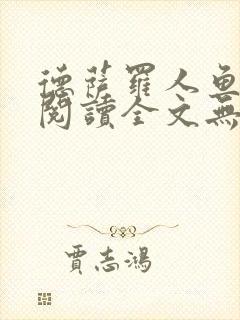 德薩羅人魚
閱讀全文無
賈志鴻